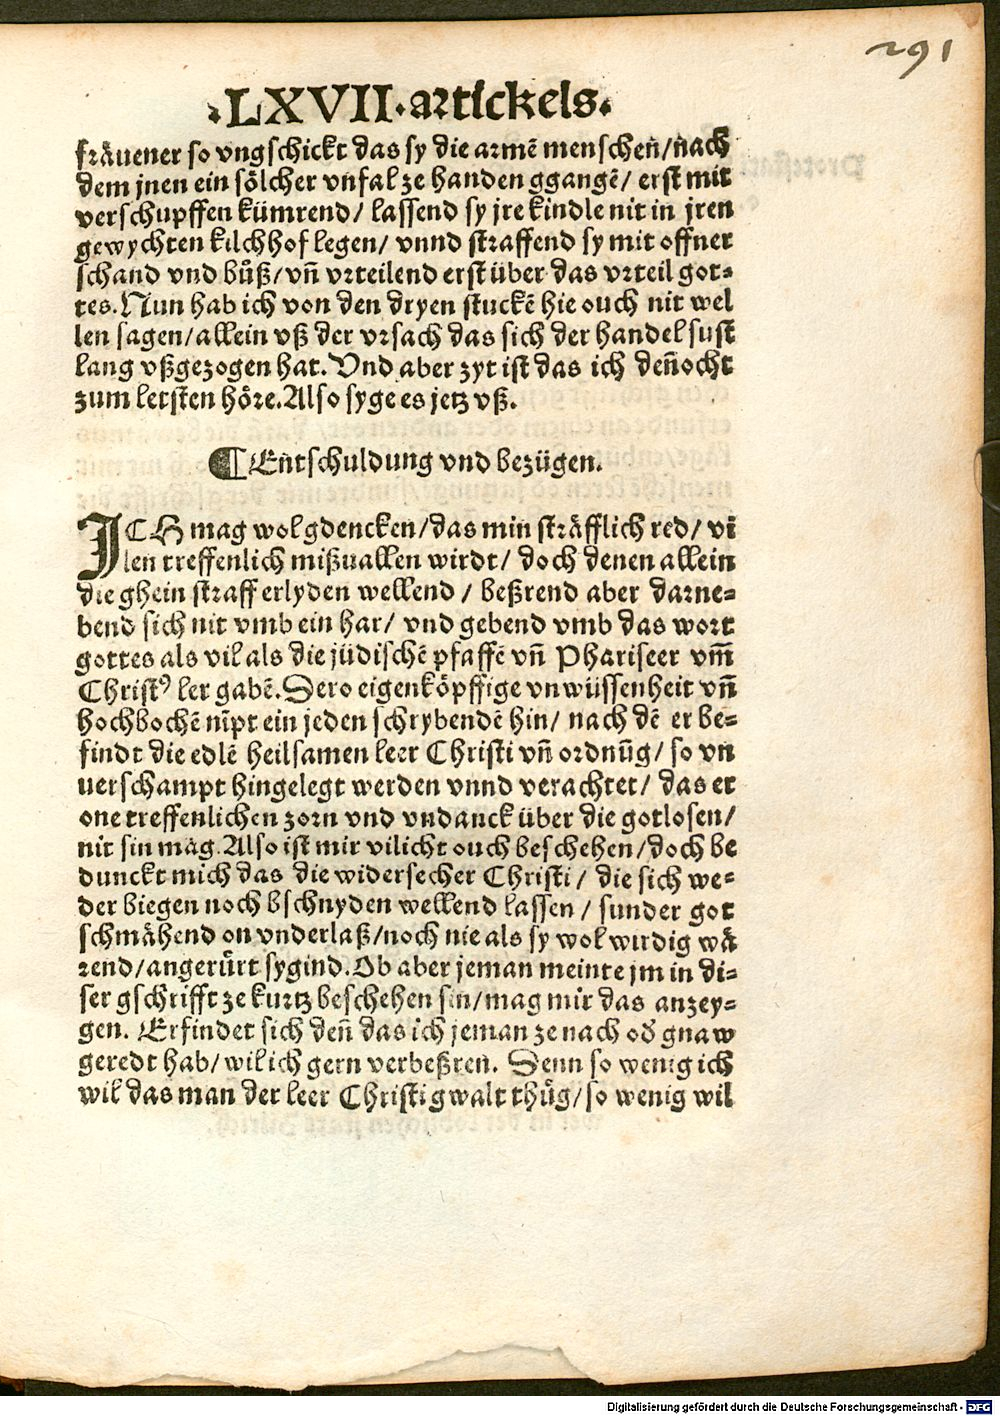 291
·LXVII·artickels·
fräuener so vngschickt das sy die armē menschen/nach
dem jnen ein sölcher vnfal ze handen ggangē/ erst mit
verschupffen kümrend/ lassend sy jre kindle nit in jren
gewychten kilchhof legen/ vnnd straffend sy mit offner
schand vnd bůß/vn̄ vrteilend erst über das vrteil got⸗
tes. Nun hab ich von den dryen stuckē hie ouch nit wel
len sagen/allein vß der vrsach das sich der handel sust
lang vßgezogen hat. Vnd aber zyt ist das ich den̄ocht
zum letsten höre. Also syge es jetz vß.
¶ Entschuldung vnd bezügen.
ICH mag wol gdencken/das min sträfflich red/ vi
len treffenlich mißuallen wirdt/ doch denen allein
die ghein straff erlyden wellend / beßrend aber darne⸗
bend sich nit vmb ein har/ vnd gebend vmb das wort
gottes als vil als die jüdischē pfaffē vn̄ Phariseer vm̄
Christꝰ ler gabē. Dero eigenköpffige vnwüssenheit vn̄
hochbochē nīpt ein jeden schrybendē hin/ nach dē er be⸗
findt die edlē heilsamen leer Christi vn̄ ordnūg/ so vn
uerschampt hingelegt werden vnnd verachtet/ das er
one treffenlichen zorn vnd vndanck über die gotlosen/
nit sin mag. Also ist mir vilicht ouch beschehen/doch be
dunckt mich das die widersecher Christi/ die sich we⸗
der biegen noch bschnyden wellend lassen / sunder got
schmähend on vnderlaß/noch nie als sy wol wirdig wä
rend/angerůrt sygind. Ob aber jeman meinte jm in di⸗
ser gschrifft ze kurtz beschehen sin/mag mir das anzey⸗
gen. Erfindet sich den̄ das ich jeman ze nach od̕ gnaw
geredt hab/ wil ich gern verbeßren. Denn so wenig ich
wil das man der leer Christi gwalt thůg/ so wenig wil
Digitalisierung gefördert durch die Deutsche Forschungsgemeinschaft - DFG